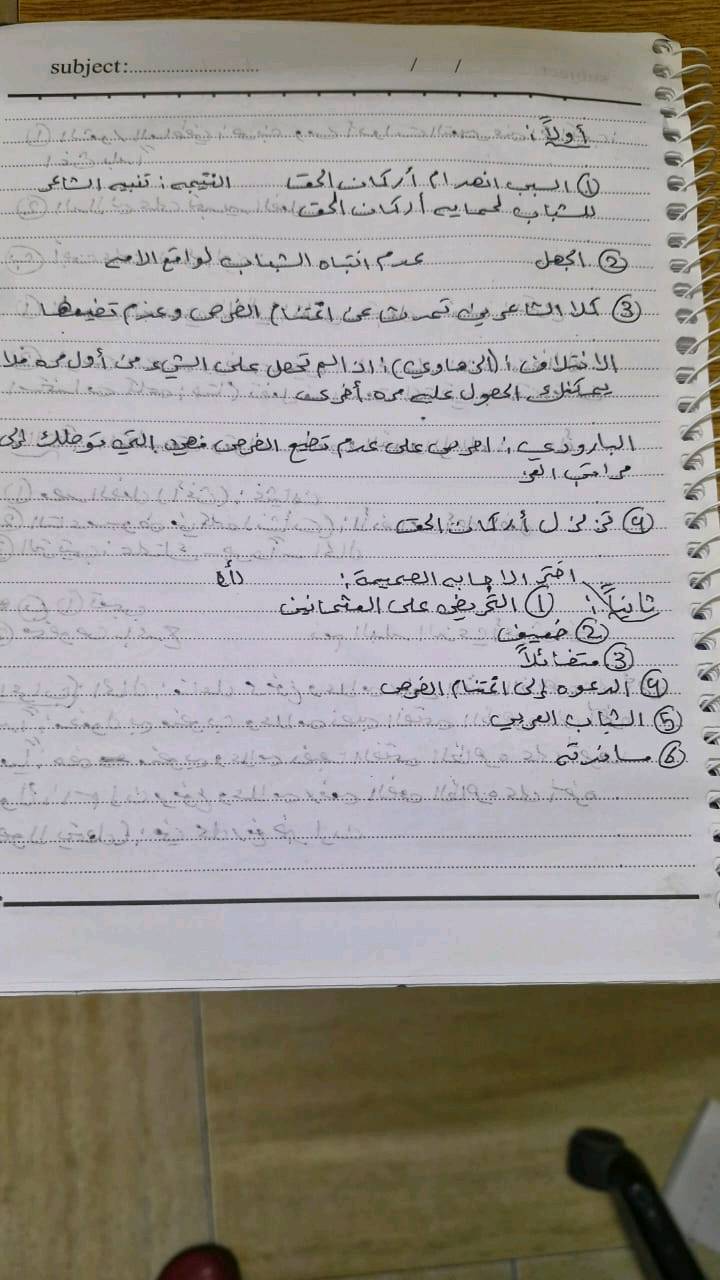 subject:............................ / /
أولاً:
① السبب انهدام أركان الحق النتيجه: تنبيه الشاعر
للشباب لحمايه أركان الحق
② الجهل عدم انتباه الشباب لواقع الامه
③ كلا الشاعرين تحدث عن اغتنام الفرص وعدم تضيعها
الاختلاف: (الزهاوي): اذا لم تحصل على الشيء من أول مره فلا
يمكنك الحصول عليه مره أخرى
البارودي: احرص على عدم تضيع الفرص فهي التي توصلك إلى
مراتب العز
④ تزلزل أركان الحق
اختر الاجابه الصحيحة:
ثانياً: ① التحريض على العثمانين
② ضعيف
③ متفائلاً
④ الدعوه إلى اغتنام الفرص
⑤ الشباب العربي
⑥ مسافرته